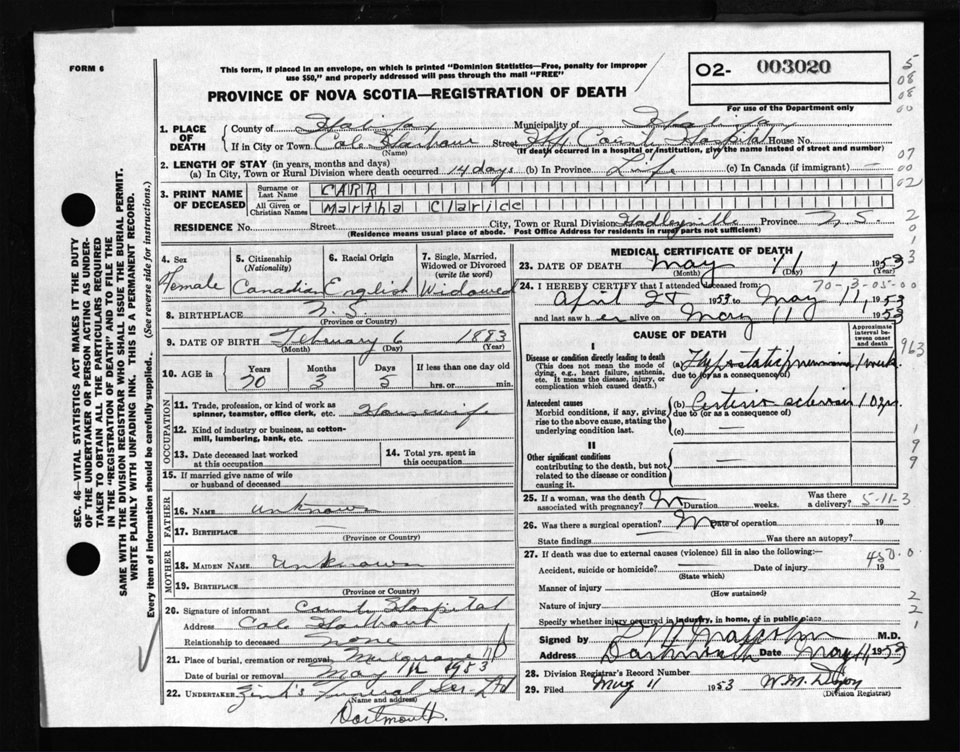 FORM 6
This form, if placed in an envelope, on which is printed "Dominion Statistics—Free, penalty for improper
use $50," and properly addressed will pass through the mail "FREE"
O2- 003020
PROVINCE OF NOVA SCOTIA—REGISTRATION OF DEATH
For use of the Department only
1. PLACE OF DEATH
County of Halifax Municipality of Halifax
If in City or Town Cole Harbour Street Hfx County Hospital House No.
(Name) (If death occurred in a hospital or institution, give the name instead of street and number)
2. LENGTH OF STAY (in years, months and days)
(a) In City, Town or Rural Division where death occurred 14 days (b) In Province Life (c) In Canada (if immigrant) —
3. PRINT NAME OF DECEASED
Surname or Last Name CARR
All Given or Christian Names Martha Clarice
RESIDENCE No. Street City, Town or Rural Division Hadleyville Province N.S.
(Residence means usual place of abode. Post Office Address for residents in rural parts not sufficient)
4. Sex Female
5. Citizenship (Nationality) Canadian
6. Racial Origin English
7. Single, Married, Widowed or Divorced (write the word) Widowed
8. BIRTHPLACE N.S.
(Province or Country)
9. DATE OF BIRTH February 6 1883
(Month) (Day) (Year)
10. AGE in Years 70 Months 3 Days 5 If less than one day
hrs. or min.
OCCUPATION
11. Trade, profession, or kind of work as
spinner, teamster, office clerk, etc. Housewife
12. Kind of industry or business, as cotton-
mill, lumbering, bank, etc.
13. Date deceased last worked
at this occupation
14. Total yrs. spent in
this occupation
15. If married give name of wife
or husband of deceased
FATHER
16. NAME Unknown
17. BIRTHPLACE —
(Province or Country)
MOTHER
18. MAIDEN NAME Unknown
19. BIRTHPLACE
(Province or Country)
20. Signature of informant County Hospital
Address Cole Harbour
Relationship to deceased None
21. Place of burial, cremation or removal Mulgrave
Date of burial or removal May 1953
22. UNDERTAKER Zink's Funeral Ser. Ltd
(Name and address)
Dartmouth.
MEDICAL CERTIFICATE OF DEATH
23. DATE OF DEATH May 11, 1953
(Month) (Day) (Year)
70-3-05-00
24. I HEREBY CERTIFY that I attended deceased from:
April 28 1953 to May 11, 1953
and last saw her alive on May 11 1953
CAUSE OF DEATH
Approximate interval between onset and death
I
Disease or condition directly leading to death
(This does not mean the mode of dying, e.g., heart failure, asthenia, etc. It means the disease, injury, or complication which caused death.)
(a) Hypostatic pneumonia 1 week
due to (or as a consequence of)
Antecedent causes
Morbid conditions, if any, giving rise to the above cause, stating the underlying condition last.
(b) Arterio sclerosis 10 yrs.
due to (or as a consequence of)
(c) —
II
Other significant conditions
contributing to the death, but not related to the disease or condition causing it.
—
25. If a woman, was the death
associated with pregnancy? No Duration weeks. Was there
a delivery? 5-11-3
26. Was there a surgical operation? No Date of operation 19
State findings Was there an autopsy?
27. If death was due to external causes (violence) fill in also the following:—
450.0
Accident, suicide or homicide? — Date of injury 19
(State which)
Manner of injury
(How sustained)
Nature of injury
Specify whether injury occurred in industry, in home, or in public place
Signed by M.D.
Address Dartmouth Date May 11 1953
28. Division Registrar's Record Number
29. Filed May 11 1953 W.M. Dixon
(Division Registrar)
SEC. 46—VITAL STATISTICS ACT MAKES IT THE DUTY
OF THE UNDERTAKER OR PERSON ACTING AS UNDER-
TAKER TO OBTAIN ALL THE PARTICULARS REQUIRED
IN THE "REGISTRATION OF DEATH" AND TO FILE THE
SAME WITH THE DIVISION REGISTRAR WHO SHALL ISSUE THE BURIAL PERMIT.
WRITE PLAINLY WITH UNFADING INK. THIS IS A PERMANENT RECORD.
Every item of information should be carefully supplied. (See reverse side for instructions.)